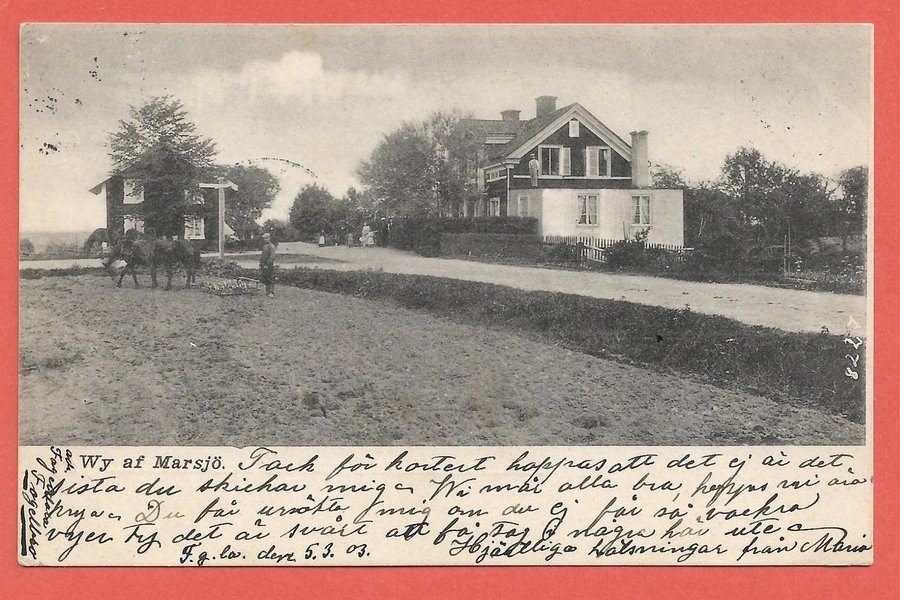 Wy af Marsjö. Tack för kortet hoppas att det ej är det
sista du skickar mig. Wi mår alla bra, hoppas ni äro
krya. Du får ursäkta mig om du ej får så vackra
vyer ty det är svårt att få tag i några här ute
F.g.la. den 5.3.03. Hjärtliga hälsningar från Maria
och
Fogelbro
8227